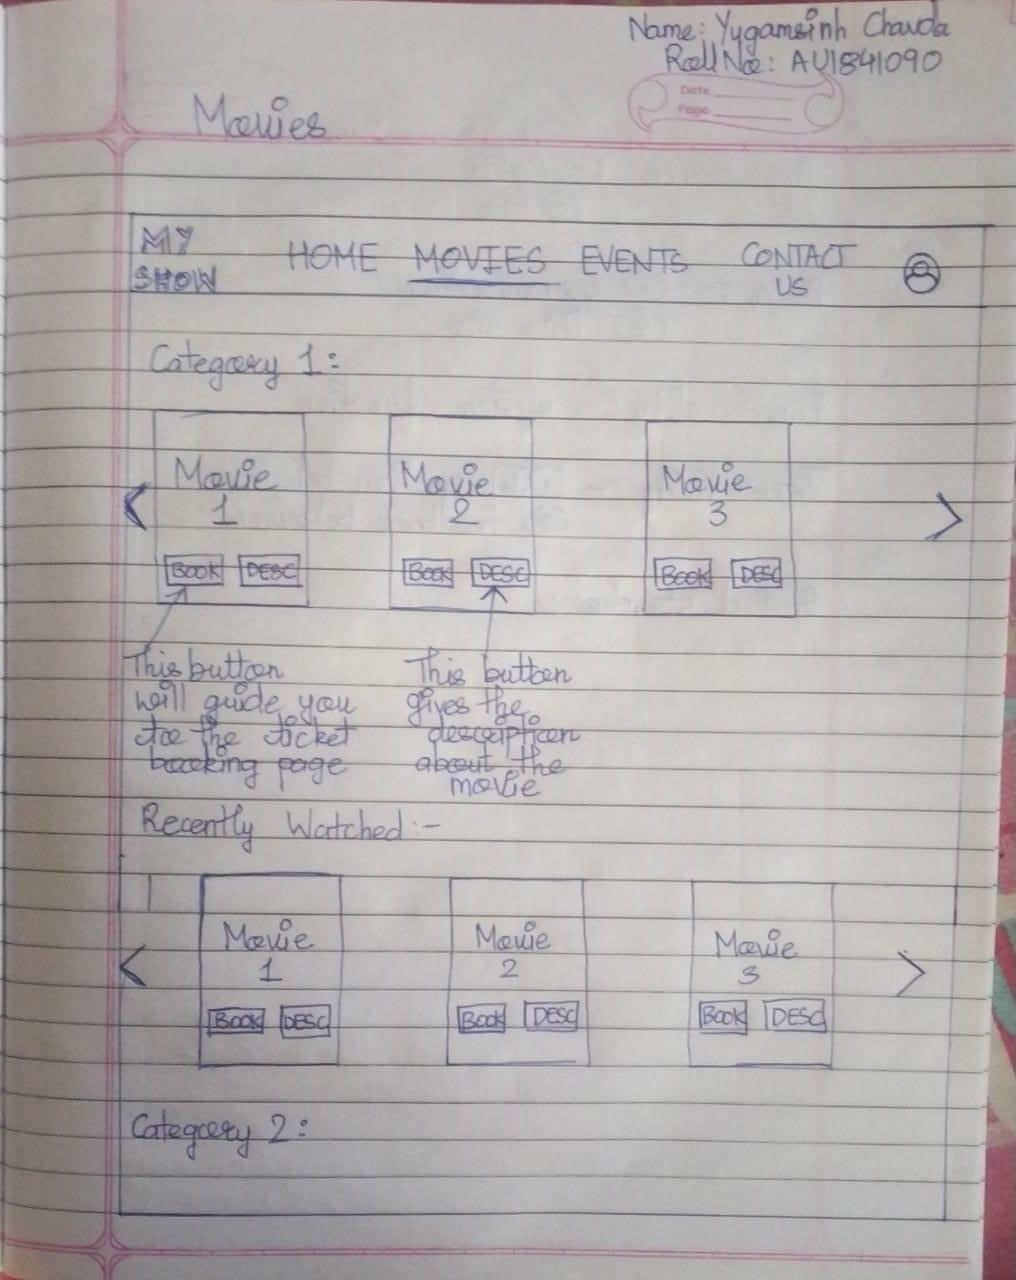 Name: Yugamsinh Chavda
Roll No: AU1841090
Date
Page
Movies
MY SHOW
HOME MOVIES EVENTS CONTACT US
Category 1:
Movie 1
BOOK DESC
Movie 2
BOOK DESC
Movie 3
BOOK DESC
This button
will guide you
to the ticket
booking page
This button
gives the
description
about the
movie
Recently Watched:-
Movie 1
BOOK DESC
Movie 2
BOOK DESC
Movie 3
BOOK DESC
Category 2: